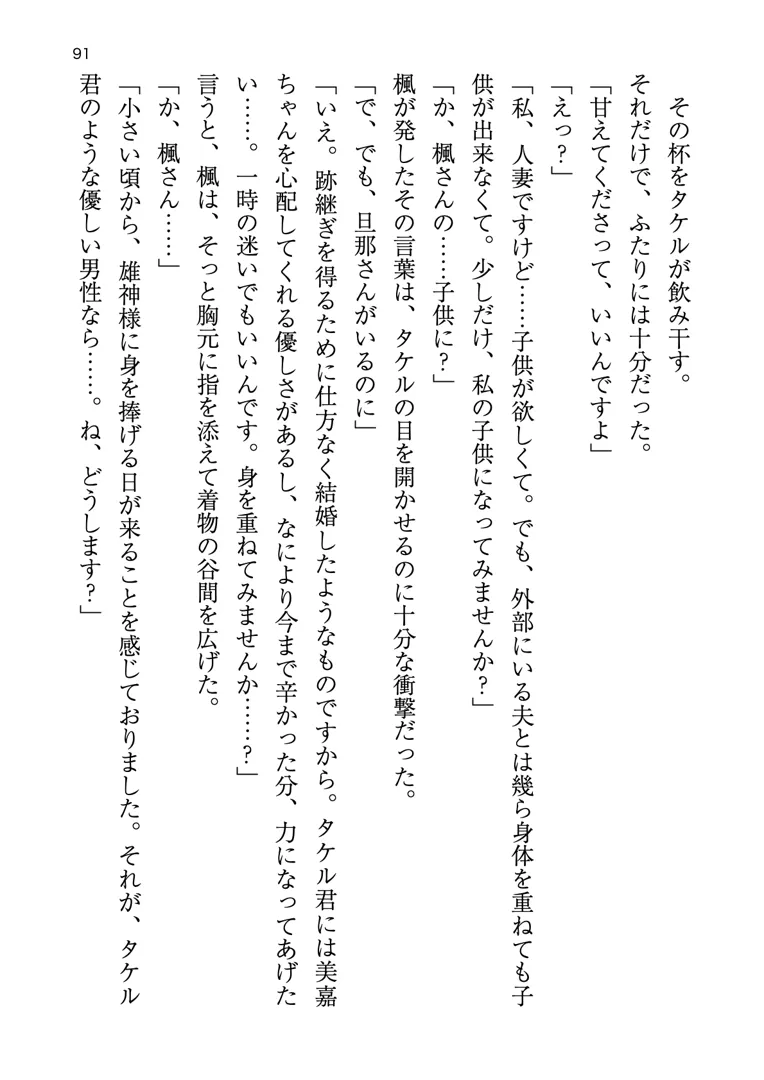 91
その杯をタケルが飲み干す。
それだけで、ふたりには十分だった。
「甘えてくださって、いいんですよ」
「えっ？」
「私、人妻ですけど……子供が欲しくて。でも、外部にいる夫とは幾ら身体を重ねても子
供が出来なくて。少しだけ、私の子供になってみませんか？」
「か、楓さんの……子供に？」
楓が発したその言葉は、タケルの目を開かせるのに十分な衝撃だった。
「で、でも、旦那さんがいるのに」
「いえ。跡継ぎを得るために仕方なく結婚したようなものですから。タケル君には美嘉
ちゃんを心配してくれる優しさがあるし、なにより今まで辛かった分、力になってあげた
い……。一時の迷いでもいいんです。身を重ねてみませんか……？」
言うと、楓は、そっと胸元に指を添えて着物の谷間を広げた。
「か、楓さん……」
「小さい頃から、雄神様に身を捧げる日が来ることを感じておりました。それが、タケル
君のような優しい男性なら……。ね、どうします？」